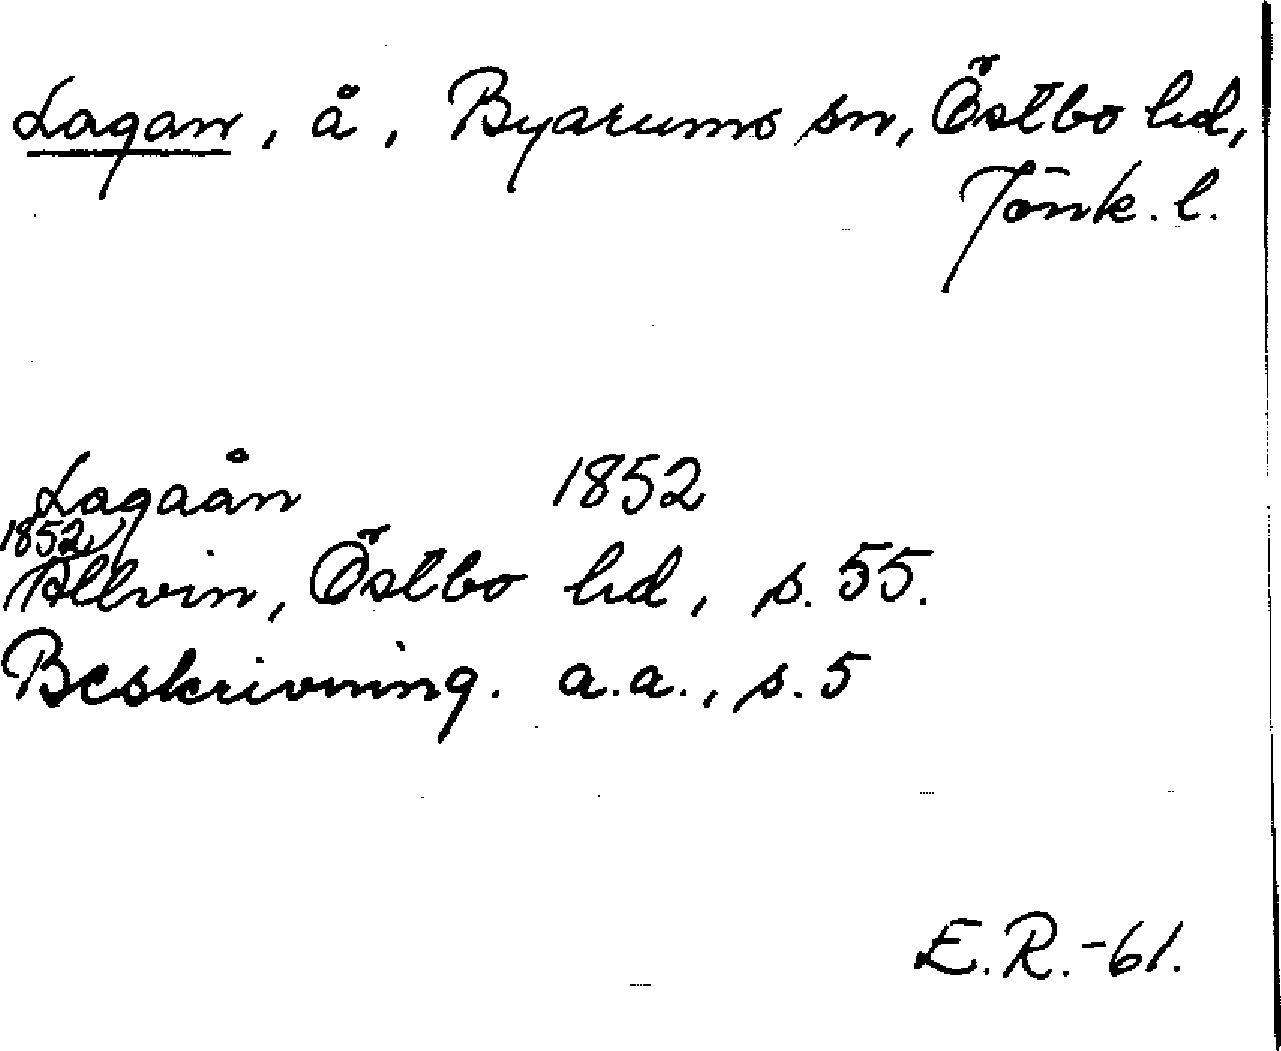 Lagan, å, Byarums sn, Östbo hd,
Jönk. l.
Lagaån 1852
1852
Allvin, Östbo hd, s. 55.
Beskrivning. a.a., s. 5
E.R.-61.